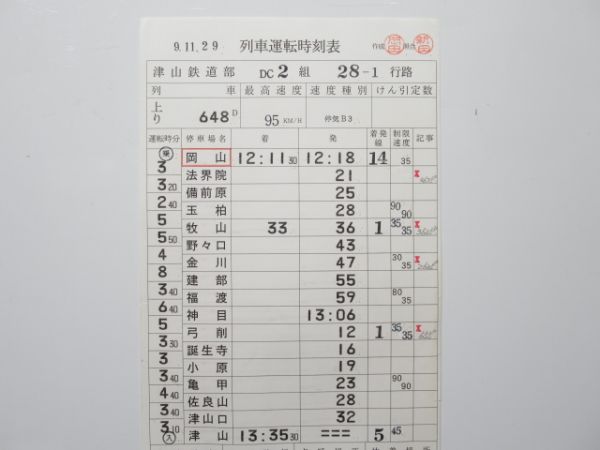 9.11.29 列車運転時刻表 作成
津山鉄道部 DC 2 組 28-1 行路
列 車 最高速度 速度種別 けん引定数
上り 648D 95 KM/H 停気B3
運転時分 停車場名 着 発 着発線 制限速度 記事
乗 岡山 12:11 30 12:18 14 35
3 法界院 21
3 20 備前原 25
2 40 玉柏 28 90 90
5 牧山 33 36 1 35 35
5 50 野々口 43
4 金川 47 30 35
8 建部 55
3 40 福渡 59 80 35
6 40 神目 13:06
5 弓削 12 1 35 35
3 30 誕生寺 16
3 小原 19
3 40 亀甲 23 90 90
4 40 佐良山 28
3 40 津山口 32
3 10 入 津山 13:35 30 === 5 45